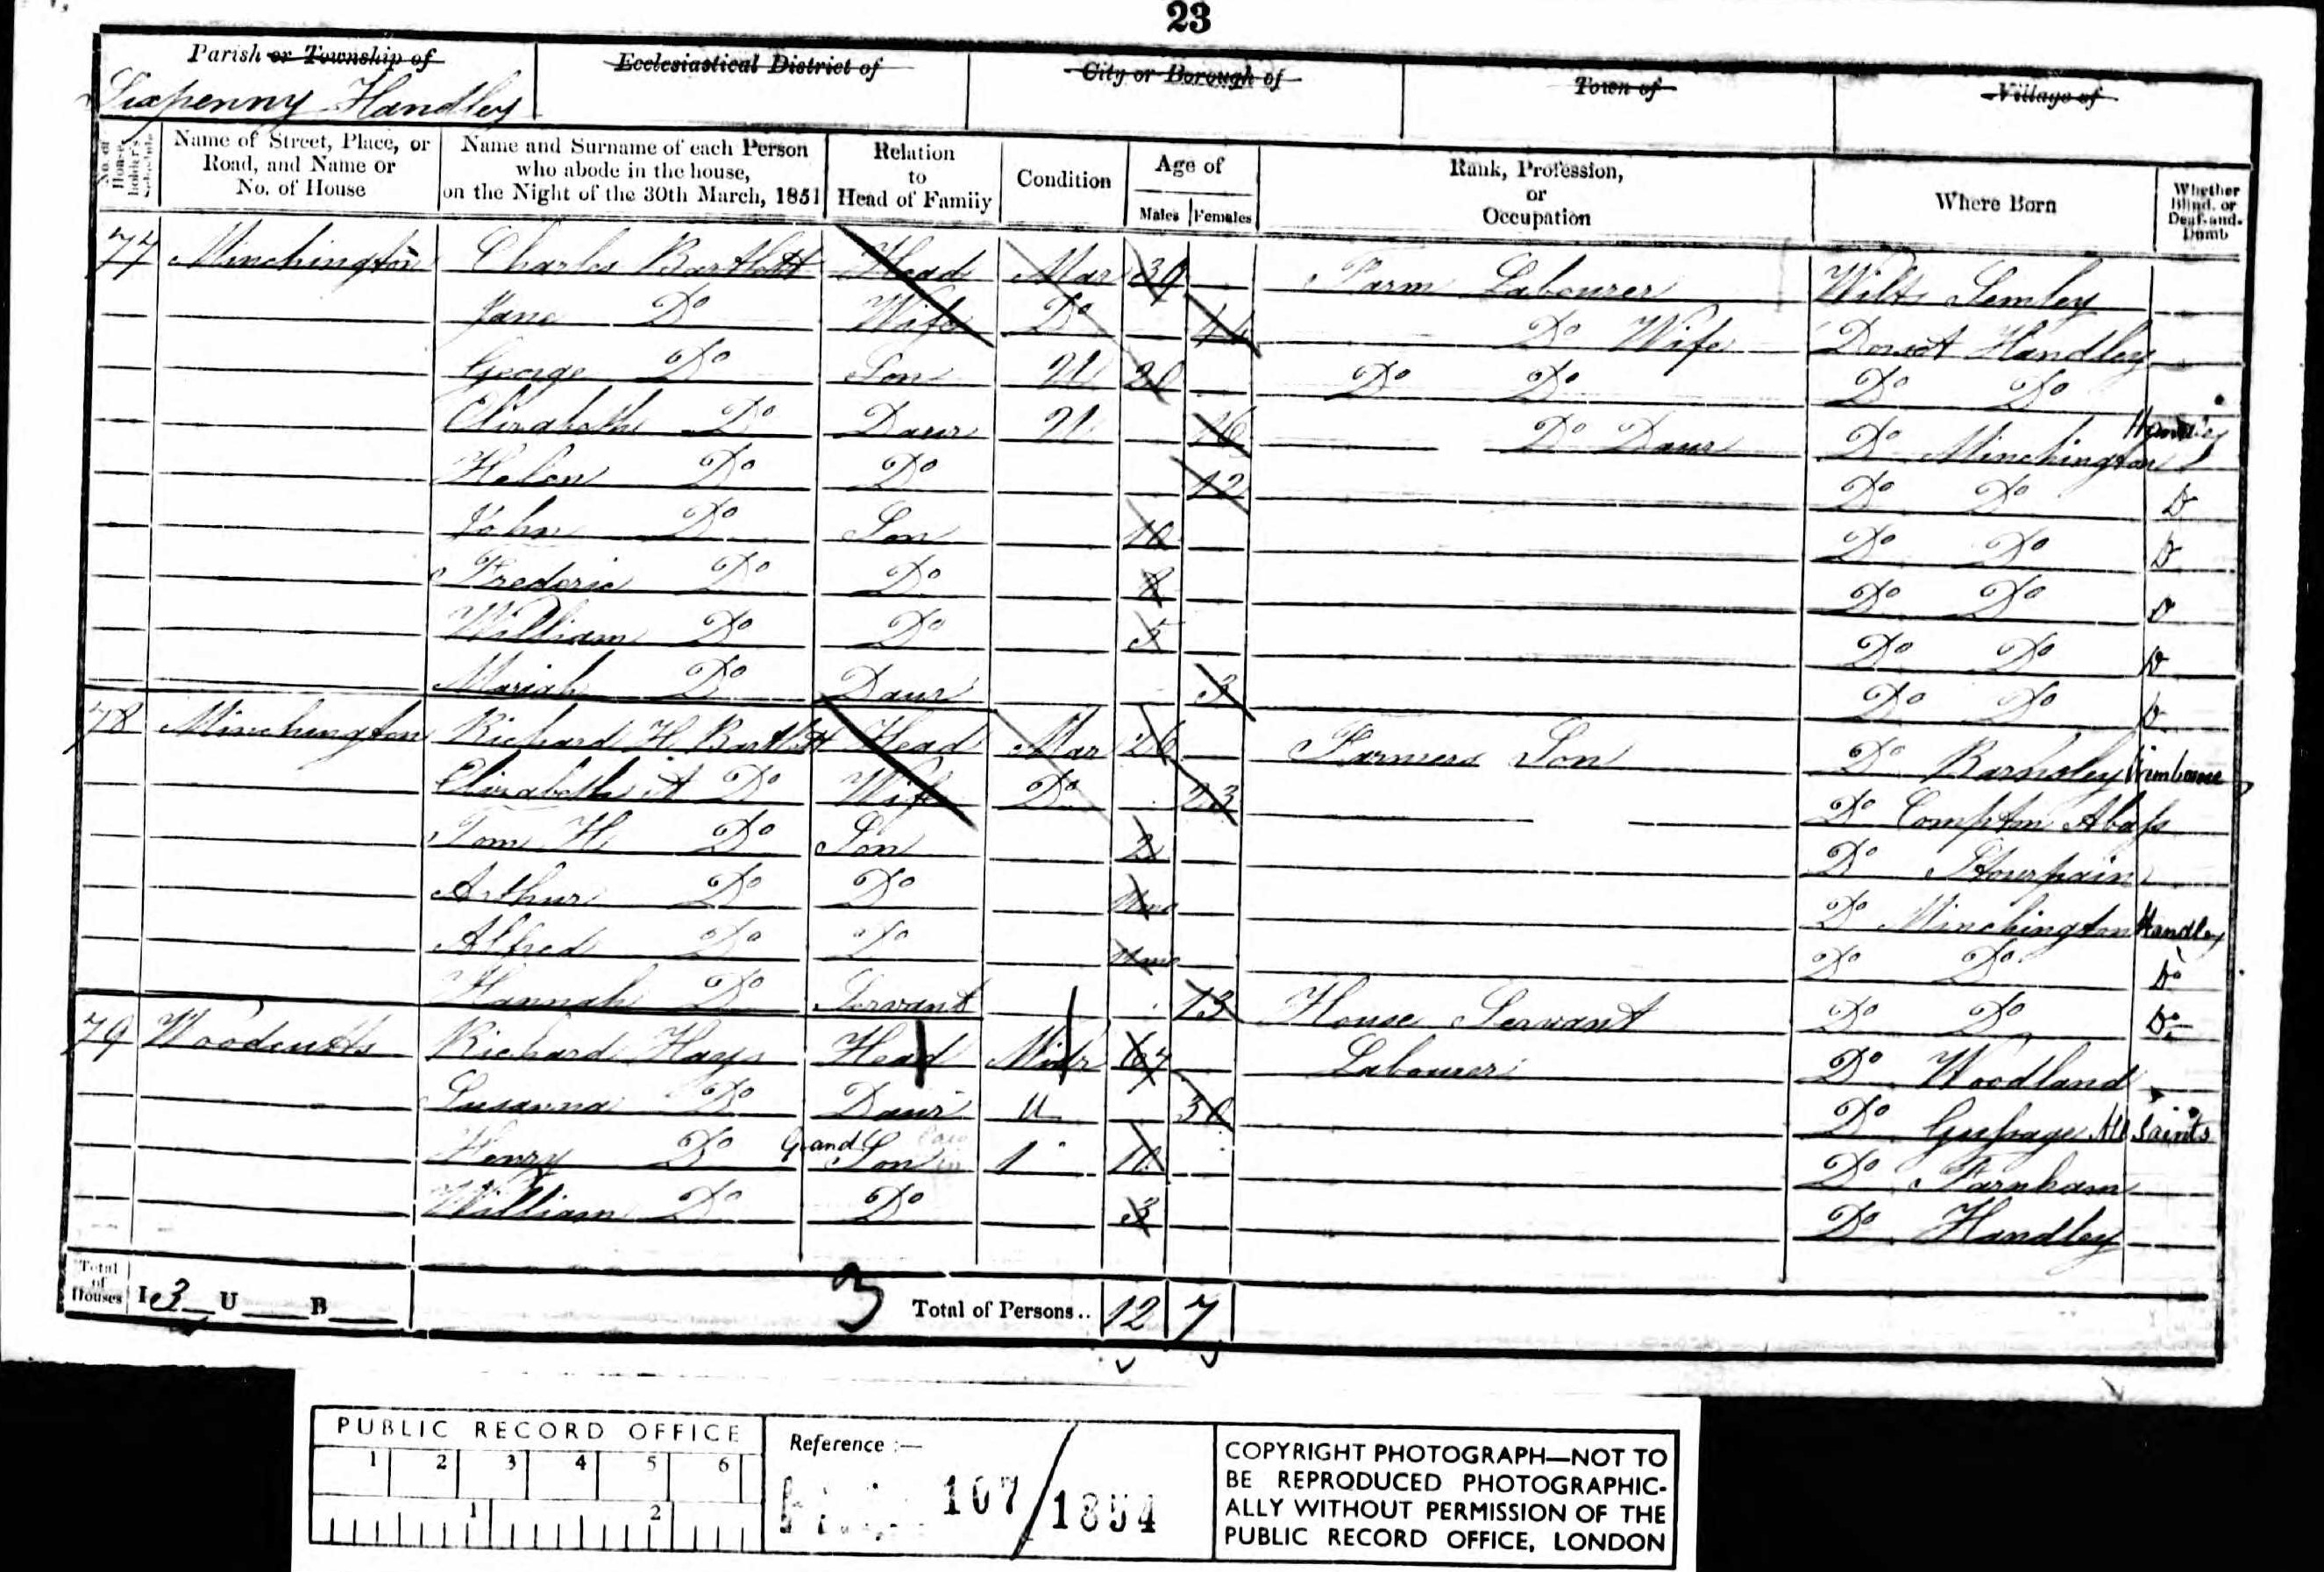 23
Parish or Township of Ecclesiastical District of City or Borough of Town of Village of
Sixpenny Handley
No. of House-holder's Schedule Name of Street, Place, or Road, and Name or No. of House Name and Surname of each Person who abode in the house, on the Night of the 30th March, 1851 Relation to Head of Family Condition Age of Males Females Rank, Profession, or Occupation Where Born Whether Blind, or Deaf-and-Dumb
77 Minchington Charles Bartlett Head Mar 39 Farm Labourer Wilts Semley
Jane Do Wife Do 44 Do Wife Dorset Handley
George Do Son U 20 Do Do Do Do
Elizabeth Do Daur U 16 Do Daur Do Minchington Handley
Helen Do Do 12 Do Do Do
John Do Son 10 Do Do Do
Frederic Do Do 8 Do Do Do
William Do Do 5 Do Do Do
Mariah Do Daur 3 Do Do Do
78 Minchington Richard H. Bartlett Head Mar 26 Farmers Son Do Barnsley Wimborne
Elizabeth A Do Wife Do 23 Do Compton Abass
Tom H. Do Son 2 Do Stourpain
Arthur Do Do 11mo Do Minchington Handley
Alfred Do Do 11mo Do Do Do
Hannah Do Servant 13 House Servant Do Do Do
79 Woodcutts Richard Hays Head Widr 67 Labourer Do Woodland
Susanna Do Daur U 30 Do Gussage All Saints
Henry Do Grand Son 10 Do Farnham
William Do Do 3 Do Handley
Total of Houses I 3 U B 3 Total of Persons.. 12 7
PUBLIC RECORD OFFICE
1 2 3 4 5 6
1 2
Reference :—
107/1854
COPYRIGHT PHOTOGRAPH—NOT TO
BE REPRODUCED PHOTOGRAPHIC-
ALLY WITHOUT PERMISSION OF THE
PUBLIC RECORD OFFICE, LONDON